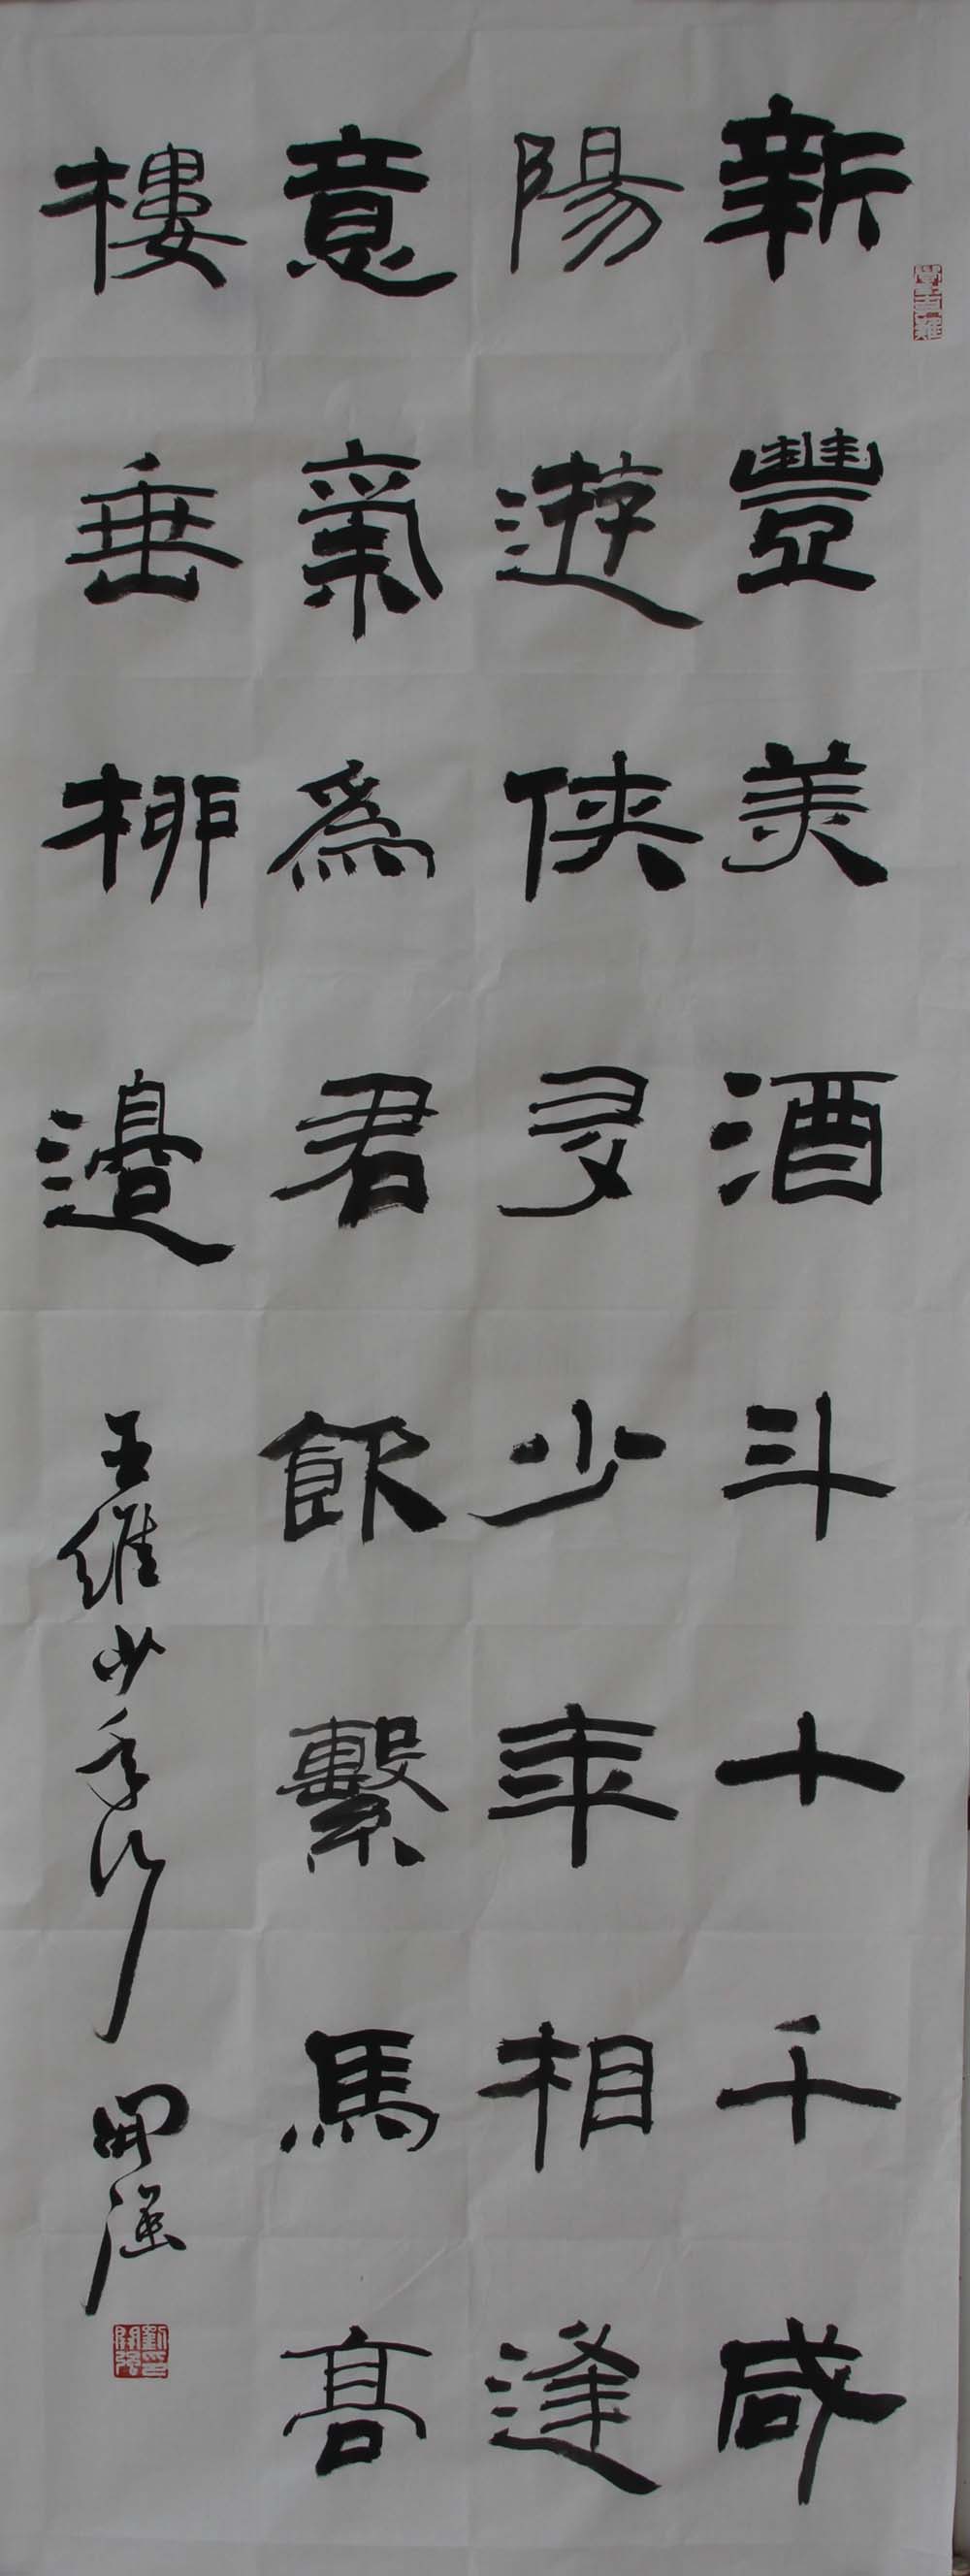 新豐美酒斗十千咸
陽遊俠多少年相逢
意氣爲君飲繫馬高
樓垂柳邊
王維少年行 開强
劉印開强